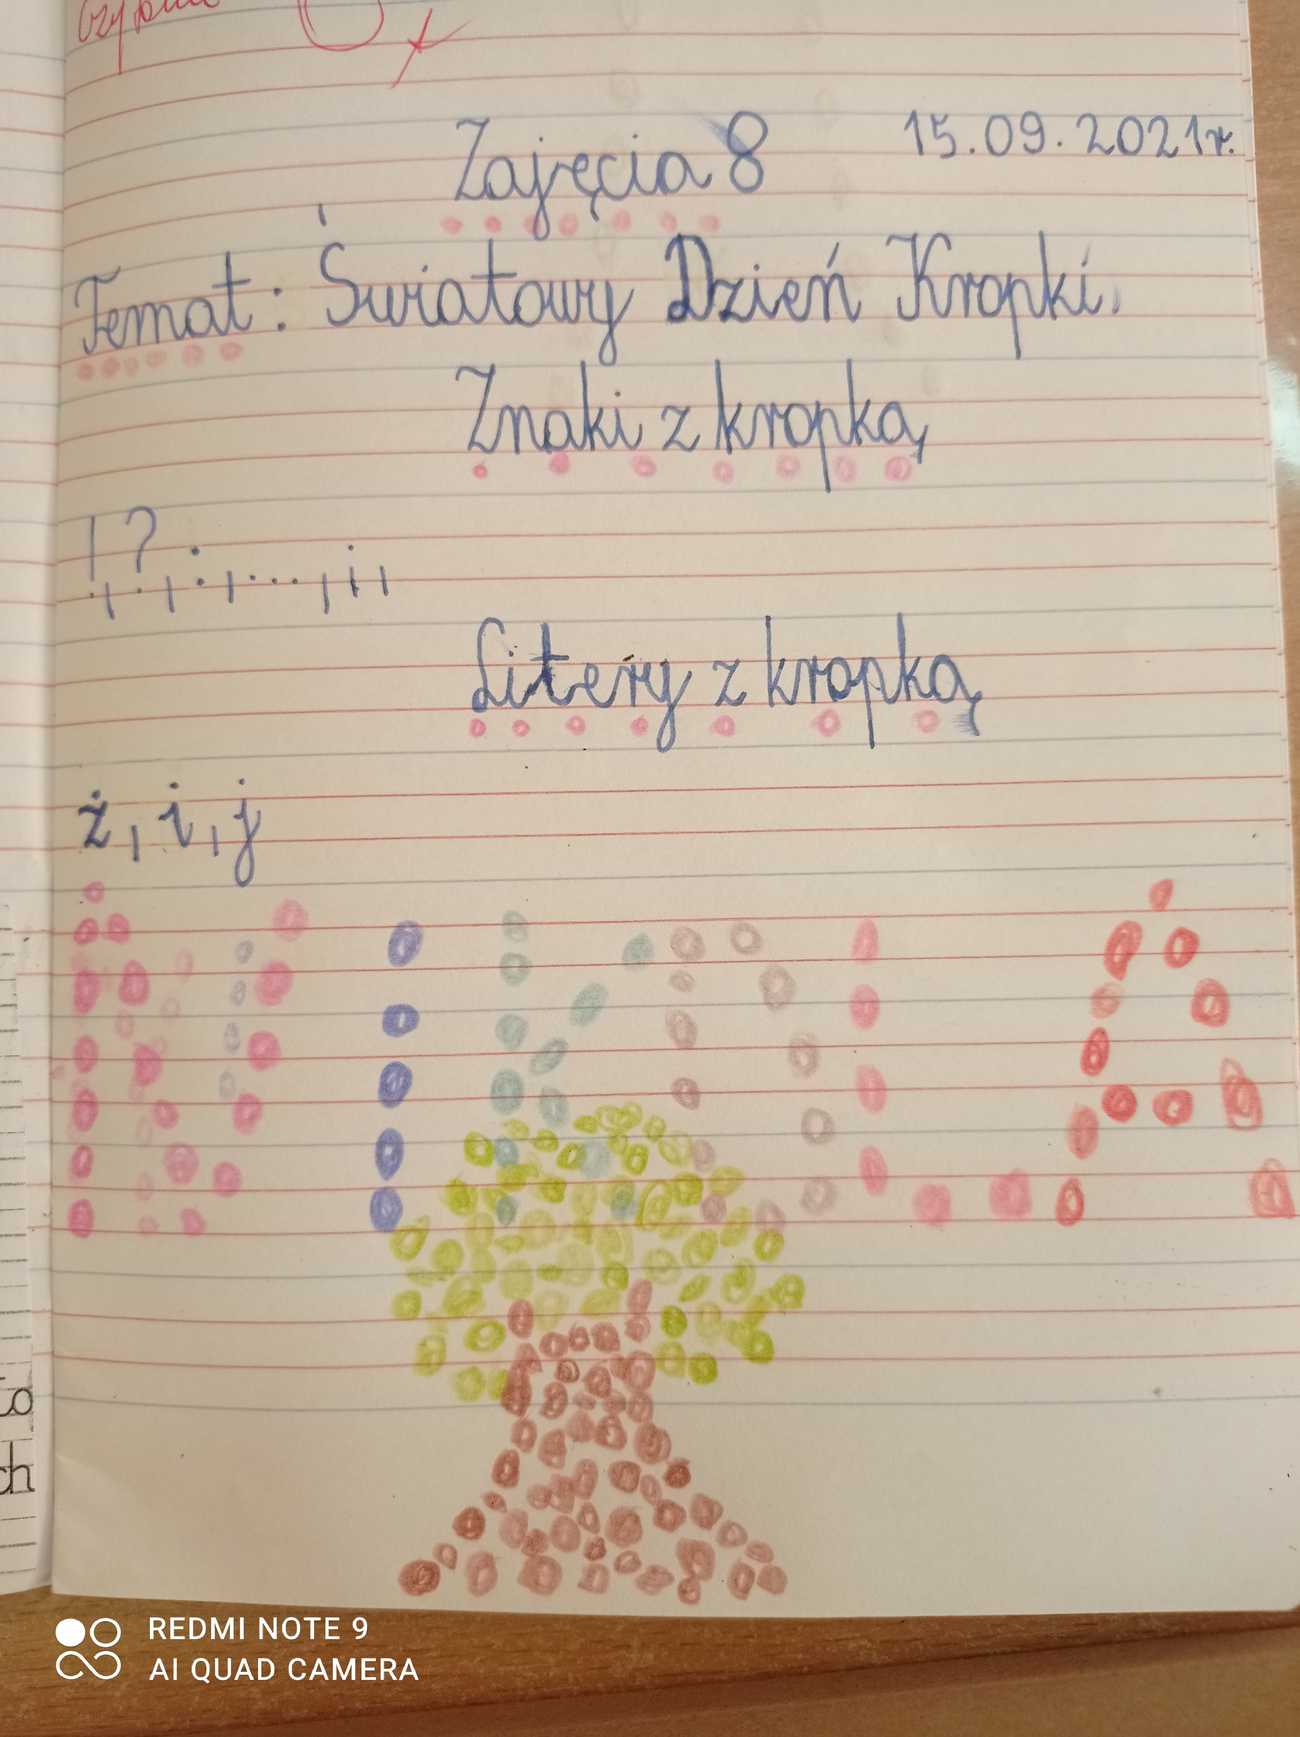 Zajęcia 8 15.09.2021r.
Temat: Światowy Dzień Kropki.
Znaki z kropką
!, ?, :, ..., i,
Litery z kropką
ż, i, j
ch
REDMI NOTE 9
AI QUAD CAMERA